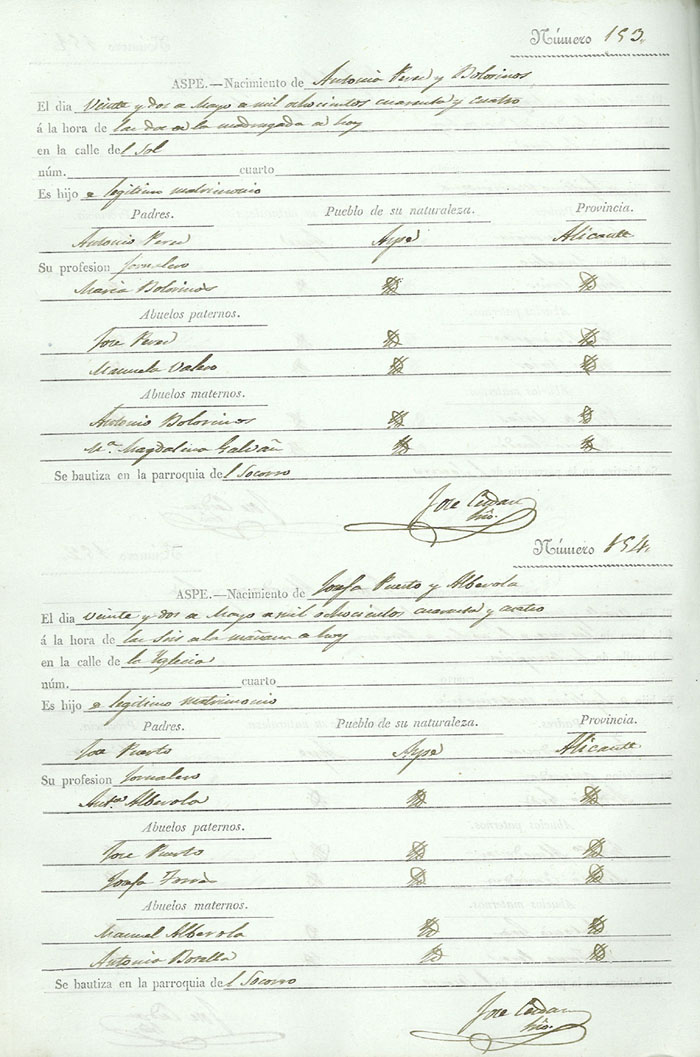 Número 153.
ASPE.—Nacimiento de Antonio Perez y Bolorinos
El dia veinte y dos de Mayo de mil ochocientos cuarenta y cuatro
á la hora de las dos de la madrugada de hoy
en la calle del Sol
núm. cuarto
Es hijo de legitimo matrimonio
Padres. Pueblo de su naturaleza. Provincia.
Antonio Perez Aspe Alicante
Su profesion Jornalero
Maria Bolorinos
Abuelos paternos.
Jose Perez
Manuela Valero
Abuelos maternos.
Antonio Bolorinos
Mª Magdalena Galvañ
Se bautiza en la parroquia del Socorro
Jose
Número 154.
ASPE.—Nacimiento de Josefa Puerto y Alberola
El dia veinte y dos de Mayo de mil ochocientos cuarenta y cuatro
á la hora de las seis de la mañana de hoy
en la calle de la Yglesia
núm. cuarto
Es hijo de legitimo matrimonio
Padres. Pueblo de su naturaleza. Provincia.
Jose Puerto Aspe Alicante
Su profesion Jornalero
Antª Alberola
Abuelos paternos.
Jose Puerto
Josefa
Abuelos maternos.
Manuel Alberola
Antonia Botella
Se bautiza en la parroquia del Socorro
Jose